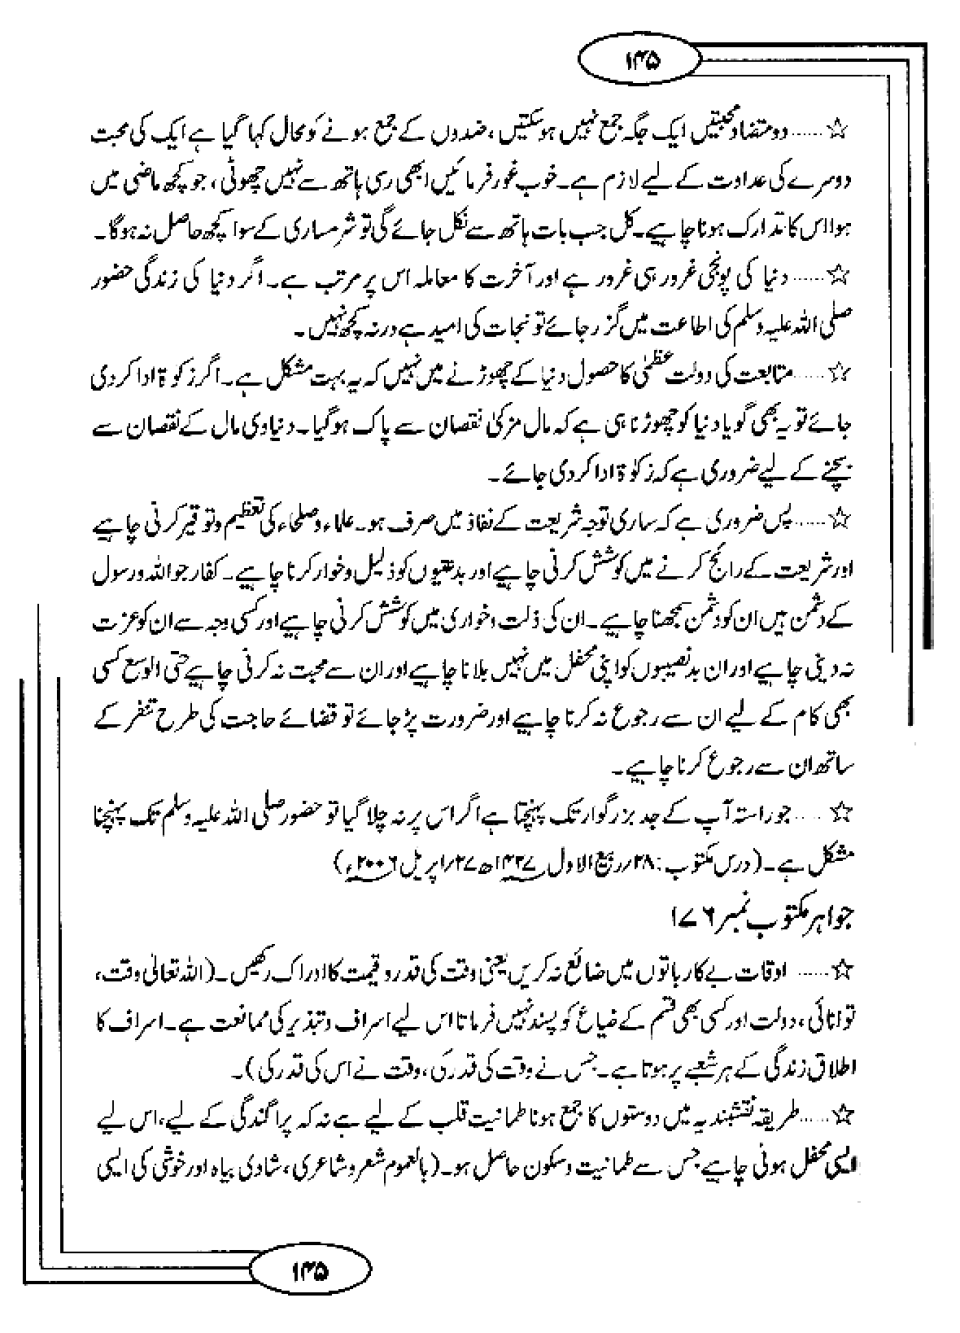 ۱۴۵
☆...... دو متضاد محبتیں ایک جگہ جمع نہیں ہو سکتیں، ضدوں کے جمع ہونے کو محال کہا گیا ہے ایک کی محبت
دوسرے کی عداوت کے لیے لازم ہے۔ خوب غور فرمائیں ابھی رسی ہاتھ سے نہیں چھوٹی، جو کچھ ماضی میں
ہوا اس کا تدارک ہونا چاہیے۔ کل جب بات ہاتھ سے نکل جائے گی تو شرمساری کے سوا کچھ حاصل نہ ہوگا۔
☆...... دنیا کی پونجی غرور ہی غرور ہے اور آخرت کا معاملہ اس پر مرتب ہے۔ اگر دنیا کی زندگی حضور
صلی اللہ علیہ وسلم کی اطاعت میں گزر جائے تو نجات کی امید ہے ورنہ کچھ نہیں۔
☆...... متابعت کی دولت عظمیٰ کا حصول دنیا کے چھوڑنے میں نہیں کہ یہ بہت مشکل ہے۔ اگر زکوۃ ادا کر دی
جائے تو یہ بھی گویا دنیا کو چھوڑنا ہی ہے کہ مال مزکیٰ نقصان سے پاک ہو گیا۔ دنیاوی مال کے نقصان سے
بچنے کے لیے ضروری ہے کہ زکوۃ ادا کر دی جائے۔
☆...... پس ضروری ہے کہ ساری توجہ شریعت کے نفاذ میں صرف ہو۔ علماء و صلحاء کی تعظیم و توقیر کرنی چاہیے
اور شریعت کے رائج کرنے میں کوشش کرنی چاہیے اور بدعتیوں کو ذلیل و خوار کرنا چاہیے۔ کفار جو اللہ و رسول
کے دشمن ہیں ان کو دشمن سمجھنا چاہیے۔ ان کی ذلت و خواری میں کوشش کرنی چاہیے اور کسی وجہ سے ان کو عزت
نہ دینی چاہیے اور ان بدنصیبوں کو اپنی محفل میں نہیں بلانا چاہیے اور ان سے محبت نہ کرنی چاہیے حتی الوسع کسی
بھی کام کے لیے ان سے رجوع نہ کرنا چاہیے اور ضرورت پڑ جائے تو قضائے حاجت کی طرح تنفر کے
ساتھ ان سے رجوع کرنا چاہیے۔
☆...... جو راستہ آپ کے جد بزرگوار تک پہنچتا ہے اگر اس پر نہ چلا گیا تو حضور صلی اللہ علیہ وسلم تک پہنچنا
مشکل ہے۔ (درس مکتوب: ۲۸/ربیع الاول ۱۴۲۷ھ ۲۷/اپریل ۲۰۰۶ء)
جواہر مکتوب نمبر ۱۷۶
☆...... اوقات بے کار باتوں میں ضائع نہ کریں یعنی وقت کی قدر و قیمت کا ادراک رکھیں۔ (اللہ تعالیٰ وقت،
توانائی، دولت اور کسی بھی قسم کے ضیاع کو پسند نہیں فرماتا اس لیے اسراف و تبذیر کی ممانعت ہے۔ اسراف کا
اطلاق زندگی کے ہر شعبے پر ہوتا ہے۔ جس نے وقت کی قدر کی، وقت نے اس کی قدر کی)۔
☆...... طریقہ نقشبندیہ میں دوستوں کا جمع ہونا طمانیت قلب کے لیے ہے نہ کہ پراگندگی کے لیے، اس لیے
ایسی محفل ہونی چاہیے جس سے طمانیت و سکون حاصل ہو۔ (بالعموم شعر و شاعری، شادی بیاہ اور خوشی کی ایسی
۱۴۵